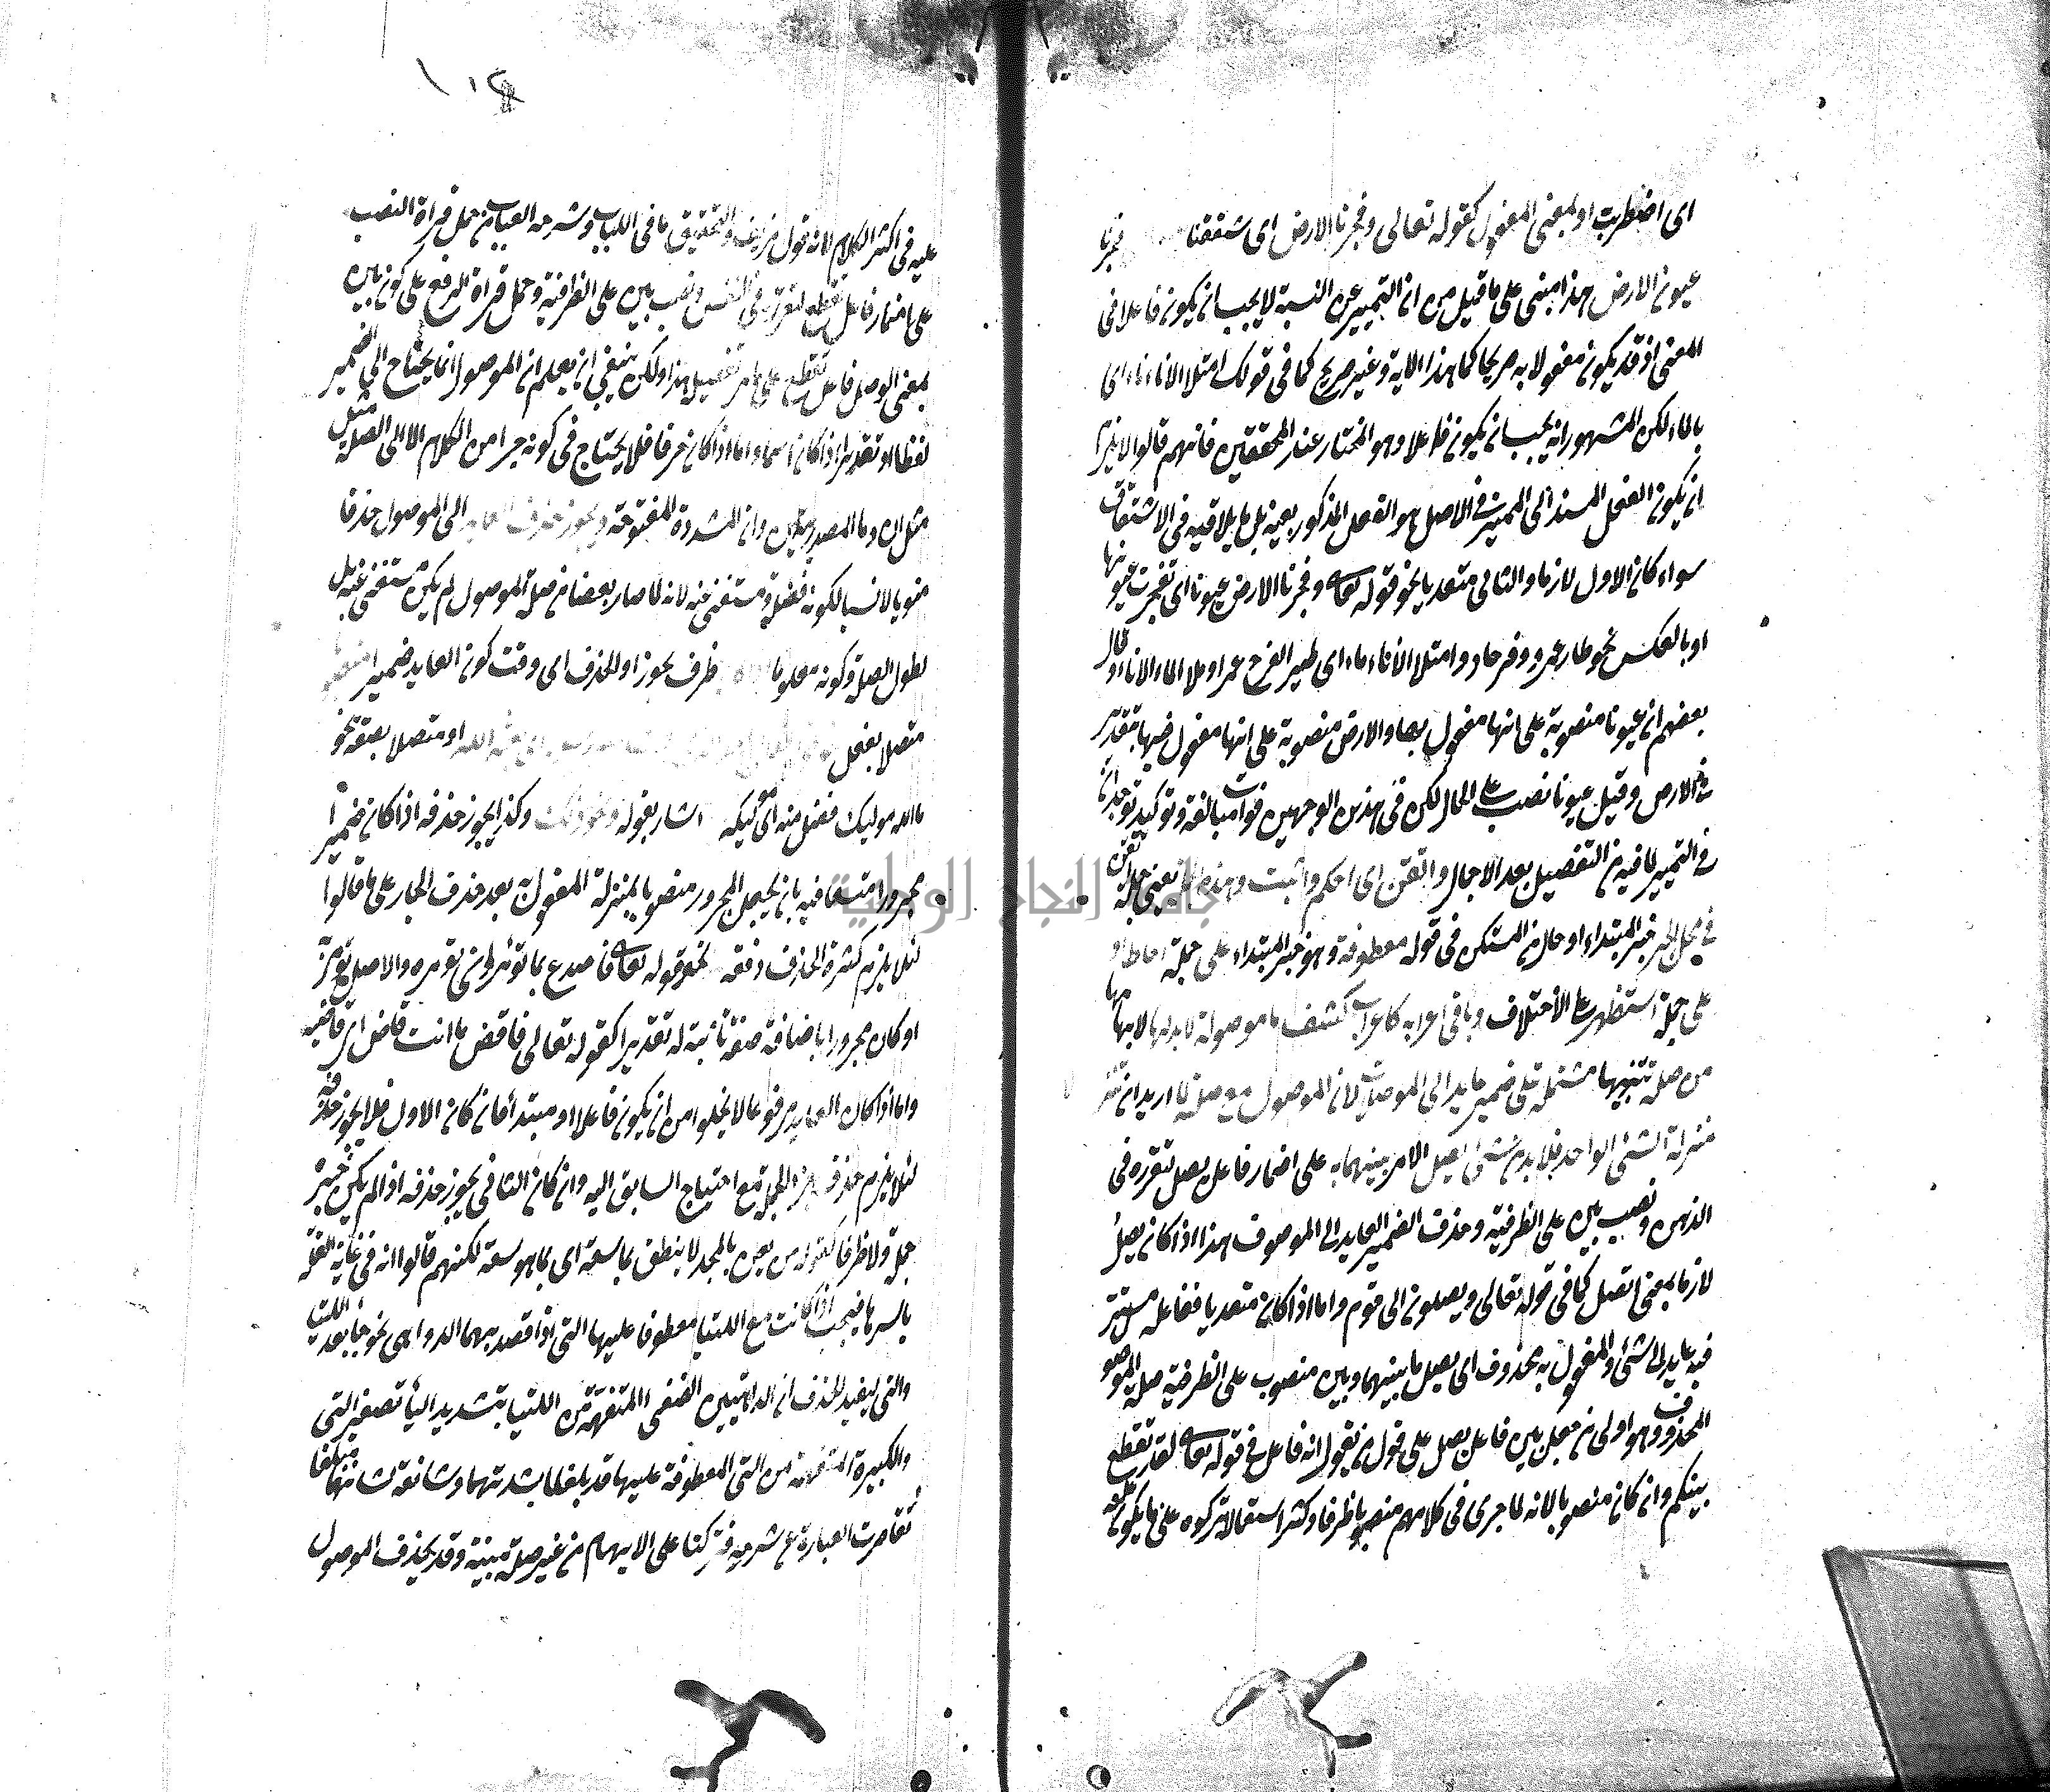 اى اضطربت او بمعنى المفعول كقوله تعالى وفجرنا الارض اى شققنا فجرنا
عيون الارض هذا مبنى على ما قيل من ان التمييز عن النسبة لا يجب ان يكون فاعلا فى
المعنى اذ قد يكون مفعولا به صريحا كما هذا الاية وغير صريح كما فى قولك امتلا الاناء ماء اى
بالماء لكن المشهور انه يجب ان يكون فاعلا وهو المختار عند المحققين فانهم قالوا لا يلزم
ان يكون الفعل المسند الى المميز فى الاصل هو الفعل المذكور بعينه بل ما يلاقيه فى الاشتقاق
سواء كان الاول لازما والثانى متعديا نحو قوله تعالى وفجرنا الارض عيونا اى تفجرت عيونها
او بالعكس نحو طار عمرو فرحا و امتلا الاناء ماء اى طير الفرح عمرا وملا الماء الاناء وقال
بعضهم ان عيونا منصوبة على انها مفعول بها والارض منصوبة على انها مفعول فيها بتقدير
فى الارض وقيل عيونا نصب على الحال لكن فى هذين الوجهين فوات مبالغة وتوكيد توجدان
فى التمييز لما فيه من التفصيل بعد الاجمال واتقن اى احكم واثبت وهذه يعنى جملة اتقن
فى محل الجر خبر المبتداء او حال من المستكن فى قوله معطوفة وهو خبر المبتداء على جملة احاط او
على جملة استظهر على الاختلاف وباقى اعرابه كاعراب كشف ما موصولة لا بد لها لابهامها
من صلة تتبينها مشتملة على ضمير عايد الى الموصول لان الموصول مع صلته لما اريد ان
منزلة الشئ الواحد فلا بد من شئ يصل الامر بينهما به على اضمار فاعل يصل لتقرره فى
الذهن ونصب بين على الظرفية وحذف الضمير العايد الى الموصوف هذا اذا كان يصل
لازما بمعنى اتصل كما فى قوله تعالى ويصلون الى قوم واما اذا كان متعديا ففاعله مستتر
فيه عايد الى شئ والمفعول به محذوف اى يصل ما بينهما وبين منصوب على الظرفية صلة الموصو
المحذوف وهو اولى من جعل بين فاعل يصل على قول من يقول انه فاعل فى قوله تعالى لقد تقطع
بينكم وان كان منصوبا لانه لما جرى فى كلامهم منصوبا ظرفا وكثر استعمالا تركوه على ما يكون عليه
عليه فى اكثر الكلام لانه قول مزيف والتحقيق ما فى اللباب وشرحه العباب من حمل قراة النصب
على اضمار فاعل تقطع لتقرره فى النفس ونصب بين على الظرفية وحمل قراة الرفع على كون بين
بمعنى الوصل فاعل تقطع على ما مر تفصيله هذا ولكن ينبغى ان يعلم ان الموصول انما يحتاج الى الضمير
لفظا او تقديرا اذا كان اسما واما اذا كان حرفا فلا يحتاج فى كونه جزا من الكلام الا الى الصلة مثل
مثل ان وما المصدريتين وان المشددة المفتوحة ويجوز حذف العايد الى الموصول حذفا
منويا لا نسيا لكونه فضلة ومستغنى عنه لانه لما صار بعضا من صلة الموصول لم يكن مستغنى عنه بل
لطول الصلة وكونه معلوما ظرف يجوز او للحذف اى وقت كون العايد ضميرا منصوبا
متصلا بفعل الله او متصلا بصفة نحو
ما الله موليك فضل منه اى موليكه اشار بقوله ونحو ذلك وكذا يجوز حذفه اذا كان ضميرا
مجرورا متسعا فيه بان يجعل المجرور منصوبا بمنزلة المفعول به بعد حذف الجار على ما قالوا
لئلا يلزم كثرة الحذف دفعة نحو قوله تعالى فاصدع بما تؤمر اى تومره والاصل تؤمر
او كان مجرورا باضافة صفة ناصبة له تقديرا كقوله تعالى فاقض ما انت قاض اى قاضيه
واما اذا كان العايد مرفوعا لا يخلوا من ان يكون فاعلا او مبتدأ فان كان الاول فلا يجوز حذفه
لئلا يلزم حذف جزء الجملة مع احتياج السابق اليه وان كان الثانى يجوز حذفه اذا لم يكن خبره
جملة ولا ظرفا كقوله من يعن بالمجد لا ينطق بما سفه اى بما هو سفه لكنهم قالوا انه فى غاية القلة
باسرها فيجب اذا كانت مع اللتيا معطوفا عليها التى اذا قصد بهما الدواهى نحو جا بعد اللتيا
والتى ليفيد الحذف ان الداهيتين الصغرى المتفهمة من اللتيا بتشديد اليا تصغير التى
والكبيرة المتفهمة من التى المعطوفة عليها قد بلغا بشدتهما وشناعة شانهما مبلغا
تقاصرت العبارة عن شرحه فتركتا على الابهام من غير صلة مبنية وقد يحذف الموصول